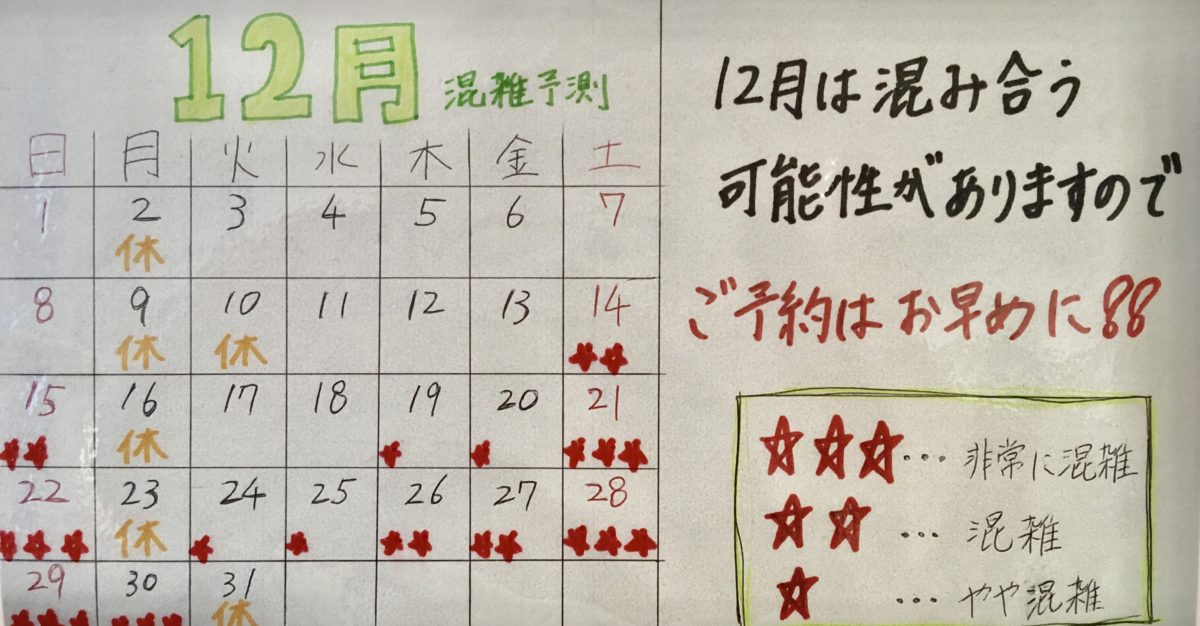 12月 混雑予測
日 月 火 水 木 金 土
1 2 3 4 5 6 7
休
8 9 10 11 12 13 14
休 休 ★★
15 16 17 18 19 20 21
★★ 休 ★ ★ ★★★
22 23 24 25 26 27 28
★★★ 休 ★ ★ ★★ ★★ ★★★
29 30 31
★★★ ★★★ 休
12月は混み合う
可能性がありますので
ご予約はお早めに!!
☆☆☆… 非常に混雑
☆☆… 混雑
☆… やや混雑